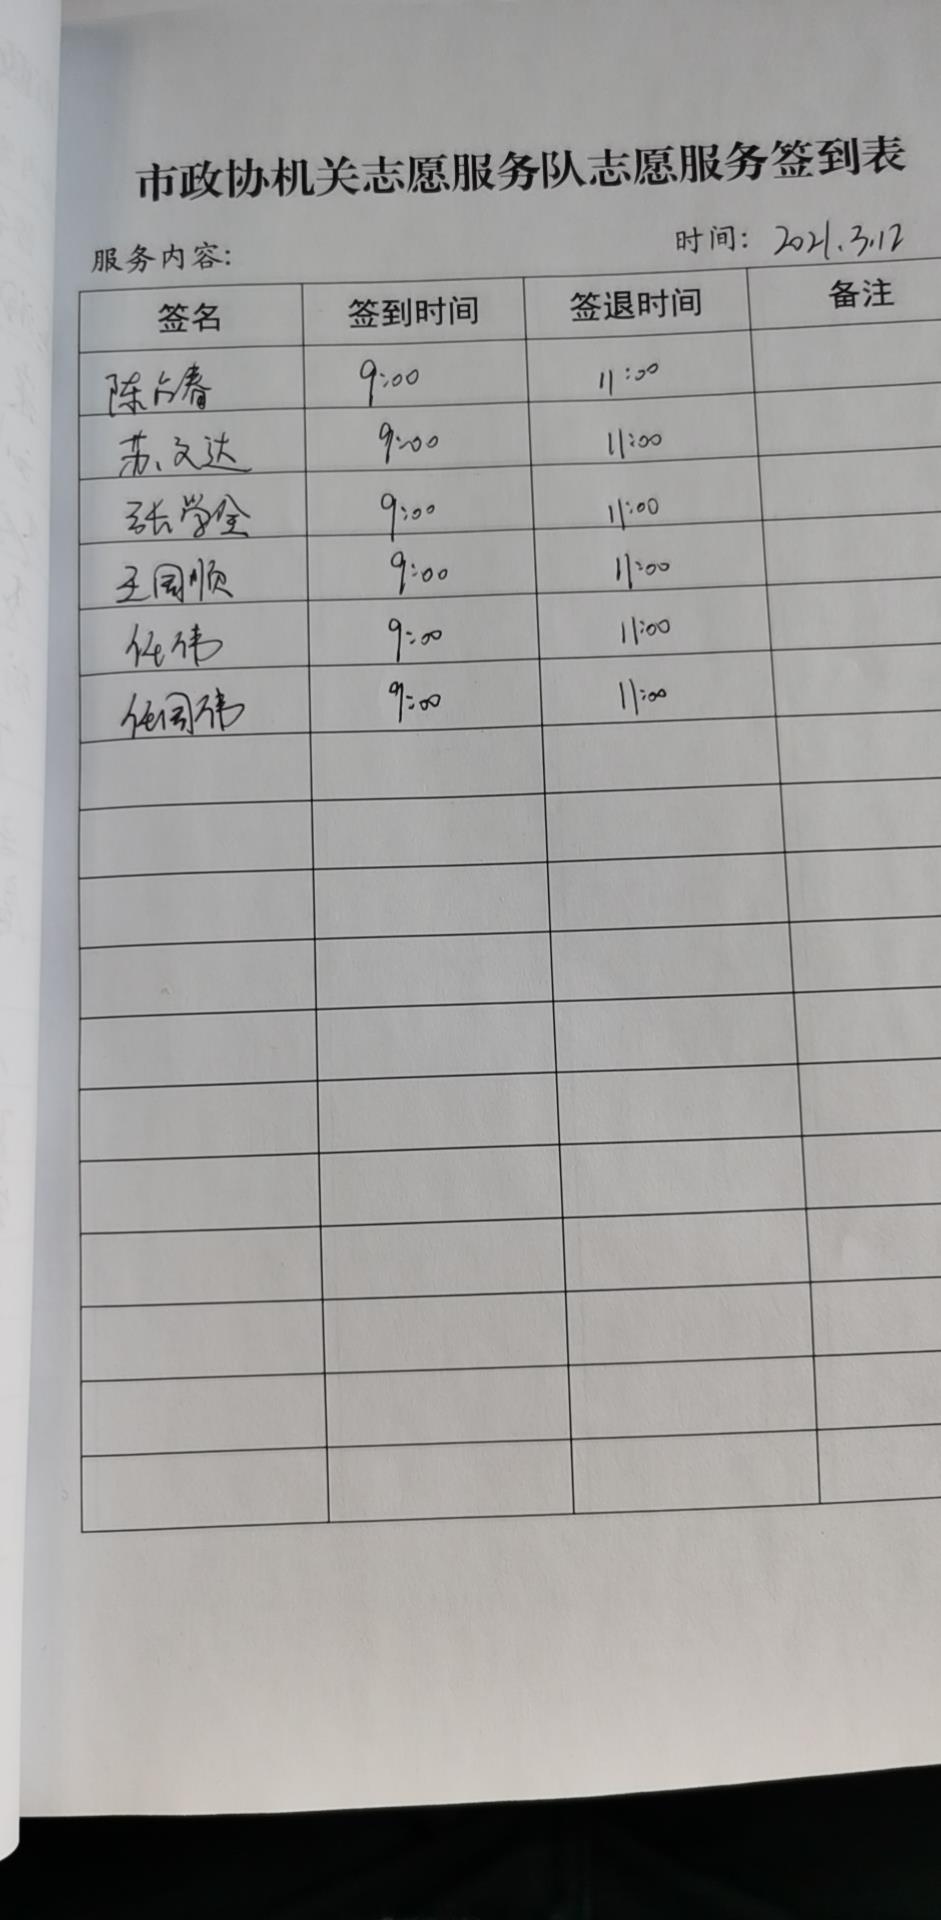 市政协机关志愿服务队志愿服务签到表
服务内容: 时间: 2021.3.12
签名 签到时间 签退时间 备注
陈占春 9:00 11:00
苏文达 9:00 11:00
张学全 9:00 11:00
王国顺 9:00 11:00
任伟 9:00 11:00
任国伟 9:00 11:00